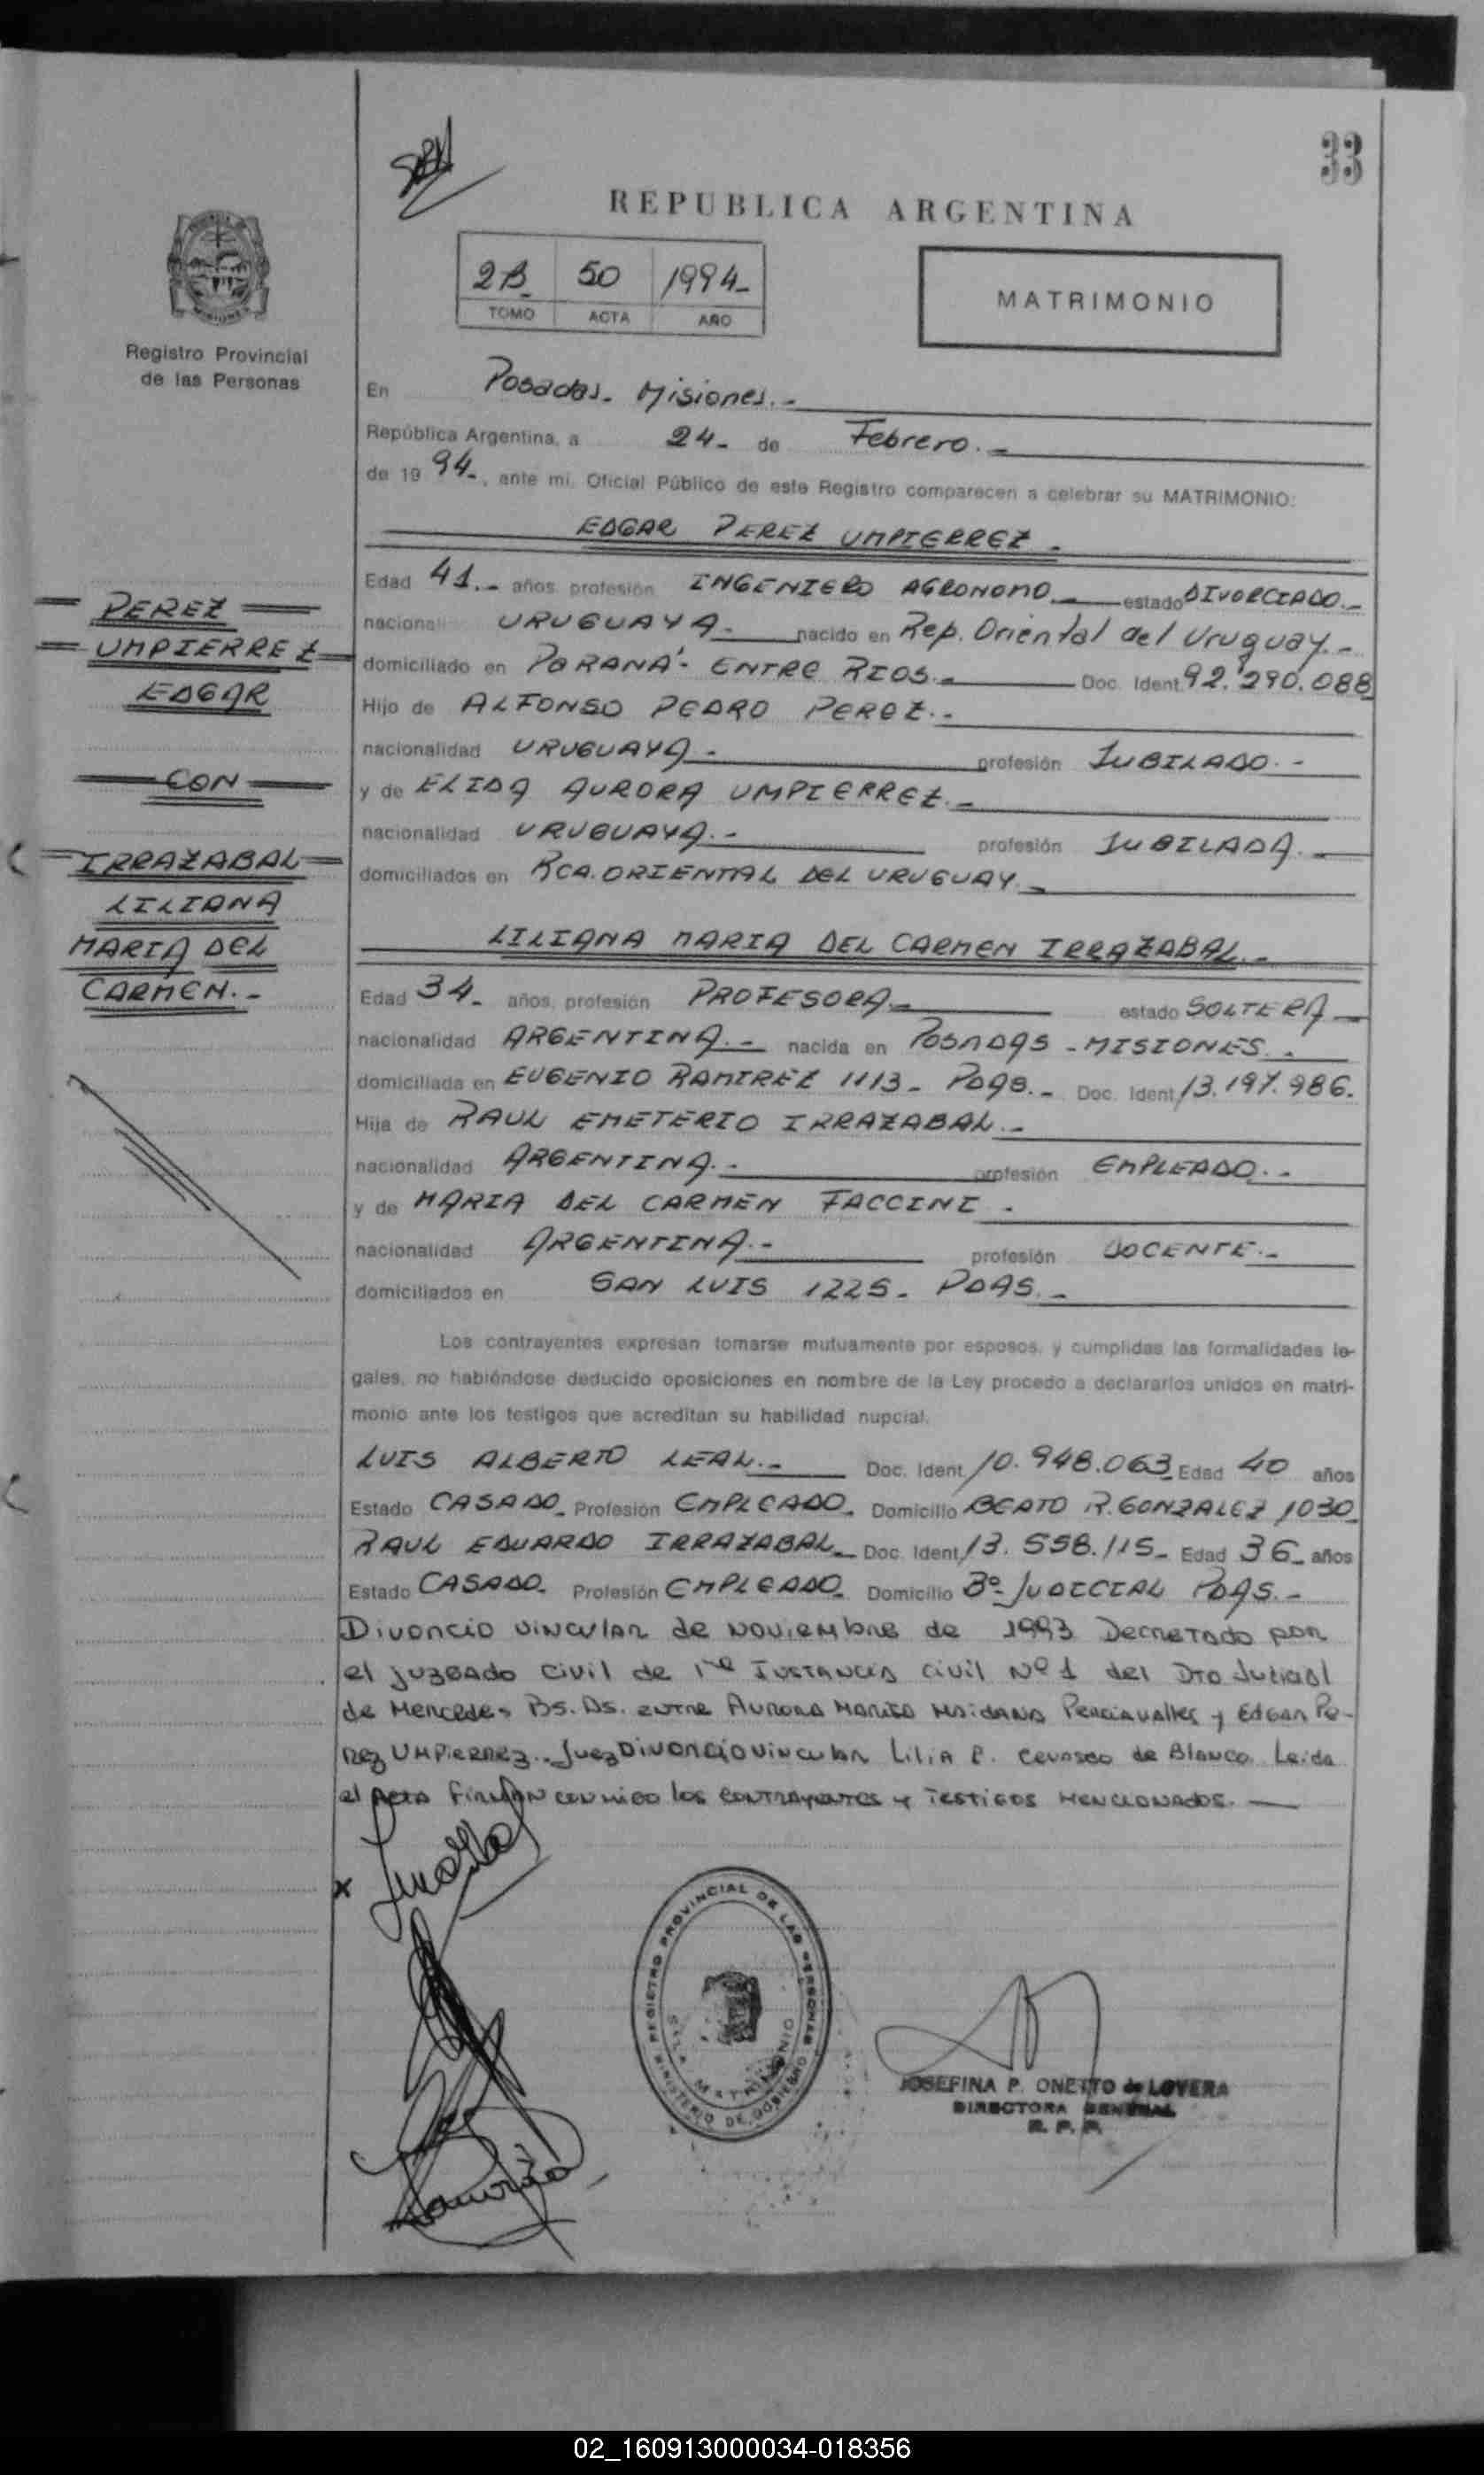 33
REPUBLICA ARGENTINA
2B 50 1994
TOMO ACTA AÑO
MATRIMONIO
Registro Provincial
de las Personas
En Posadas. Misiones.-
República Argentina, a 24- de Febrero.-
de 19 94-, ante mi, Oficial Público de este Registro comparecen a celebrar su MATRIMONIO:
EDGAR PEREZ UMPIERREZ.
Edad 41.- años profesión INGENIERO AGRONOMO.- estado DIVORCIADO.-
nacionali URUGUAYA- nacido en Rep. Oriental del Uruguay.-
domiciliado en PARANÁ- ENTRE RIOS.- Doc. Ident. 92.290.088
Hijo de ALFONSO PEDRO PEREZ.-
nacionalidad URUGUAYA- profesión JUBILADO.-
y de ELIDA AURORA UMPIERREZ.-
nacionalidad URUGUAYA.- profesión JUBILADA.-
domiciliados en RCA. ORIENTAL DEL URUGUAY.-
PEREZ
UMPIERREZ
EDGAR
CON
IRRAZABAL
LILIANA
MARIA DEL
CARMEN.-
LILIANA MARIA DEL CARMEN IRRAZABAL.-
Edad 34- años, profesión PROFESORA- estado SOLTERA-
nacionalidad ARGENTINA.- nacida en POSADAS -MISIONES.-
domiciliada en EUGENIO RAMIREZ 1113- PDAS.- Doc. Ident 13.197.986.
Hija de RAUL EMETERIO IRRAZABAL.-
nacionalidad ARGENTINA.- profesión EMPLEADO.-
y de MARIA DEL CARMEN FACCINI.
nacionalidad ARGENTINA.- profesión DOCENTE.-
domiciliados en SAN LUIS 1225- PDAS.-
Los contrayentes expresan tomarse mutuamente por esposos, y cumplidas las formalidades le-
gales, no habiéndose deducido oposiciones en nombre de la Ley procedo a declararlos unidos en matri-
monio ante los testigos que acreditan su habilidad nupcial.
LUIS ALBERTO LEAL.- Doc. Ident. 10.948.063 Edad 40 años
Estado CASADO- Profesión EMPLEADO- Domicilio BEATO R. GONZALEZ 1030-
RAUL EDUARDO IRRAZABAL- Doc. Ident 13.558.115- Edad 36- años
Estado CASADO- Profesión EMPLEADO- Domicilio Bº JUDICIAL PDAS.-
Divorcio vincular de noviembre de 1993 Decretado por
el juzgado civil de 1ra Instancia civil Nº 1 del Dto Judicial
de Mercedes Bs. As. entre Aurora y Edgar Pe-
rez Umpierrez.. Juez Divorcio vincular Lilia C. de Blanco. Leida
el Acta firman conmigo los contrayentes y testigos mencionados.-
x
REGISTRO PROVINCIAL DE LAS PERSONAS
MINISTERIO DE GOBIERNO
SALA MATRIMONIO
JOSEFINA P. ONETTO de LOVERA
DIRECTORA GENERAL
R. P. P.
02_160913000034-018356